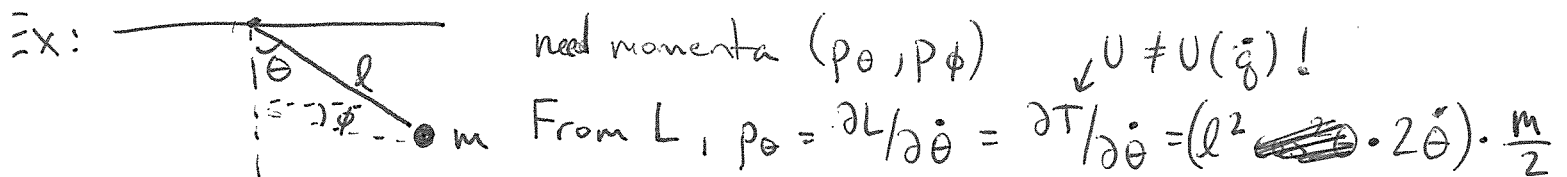 Ex:
θ
l
φ
m
need momenta (p_θ, p_φ)
U ≠ U(q̇)!
From L, p_θ = ∂L/∂θ̇ = ∂T/∂θ̇ = (l² · 2θ̇) · m/2